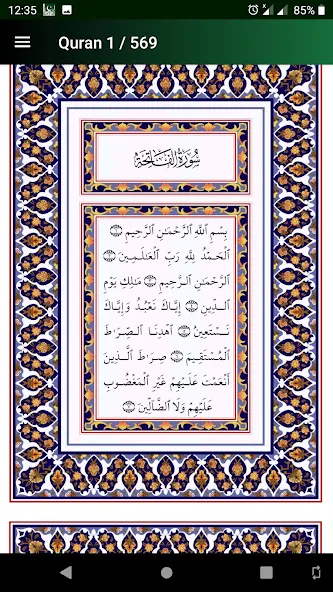 12:35
85%
Quran 1 / 569
سُورَةُ الفَاتِحَةِ
بِسْمِ ٱللَّهِ ٱلرَّحْمَـٰنِ ٱلرَّحِيمِ
ٱلْحَمْدُ لِلَّهِ رَبِّ ٱلْعَـٰلَمِينَ
ٱلرَّحْمَـٰنِ ٱلرَّحِيمِ مَـٰلِكِ يَوْمِ
ٱلدِّينِ إِيَّاكَ نَعْبُدُ وَإِيَّاكَ
نَسْتَعِينُ ٱهْدِنَا ٱلصِّرَٰطَ
ٱلْمُسْتَقِيمَ صِرَٰطَ ٱلَّذِينَ
أَنْعَمْتَ عَلَيْهِمْ غَيْرِ ٱلْمَغْضُوبِ
عَلَيْهِمْ وَلَا ٱلضَّآلِّينَ